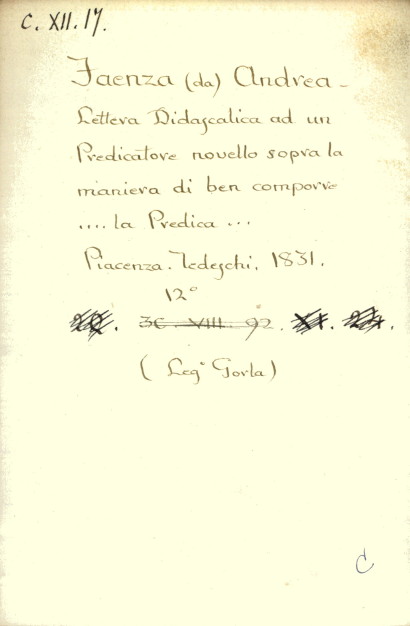 C. XII. 17.
Faenza (da) Andrea -
Lettera Didascalica ad un
Predicatore novello sopra la
maniera di ben comporre
.... la Predica ...
Piacenza. Tedeschi, 1831.
12°
3C VIII. 92.
(Leg° Gorla)
C